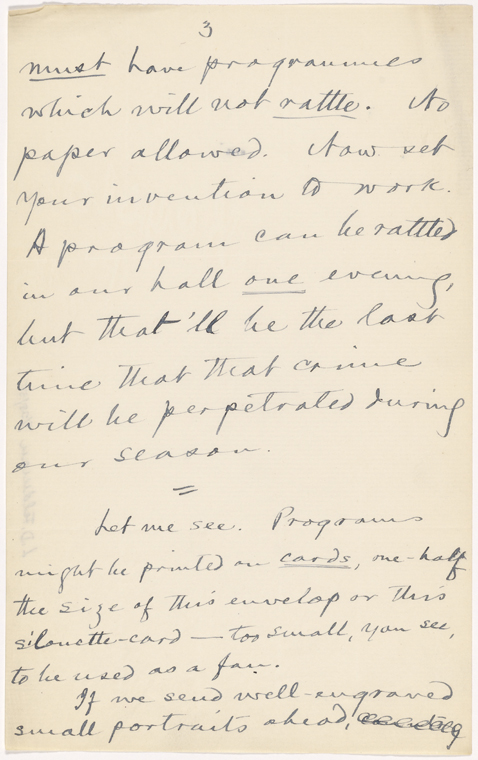 3
must have programmes
which will not rattle. No
paper allowed. Now set
your invention to work.
A program can be rattled
in our hall one evening,
but that'll be the last
time that that crime
will be perpetrated during
our season.
=
Let me see. Programs
might be printed on cards, one-half
the size of this envelop or this
silouette-card — too small, you see,
to be used as a fan.
If we send well-engraved
small portraits ahead,